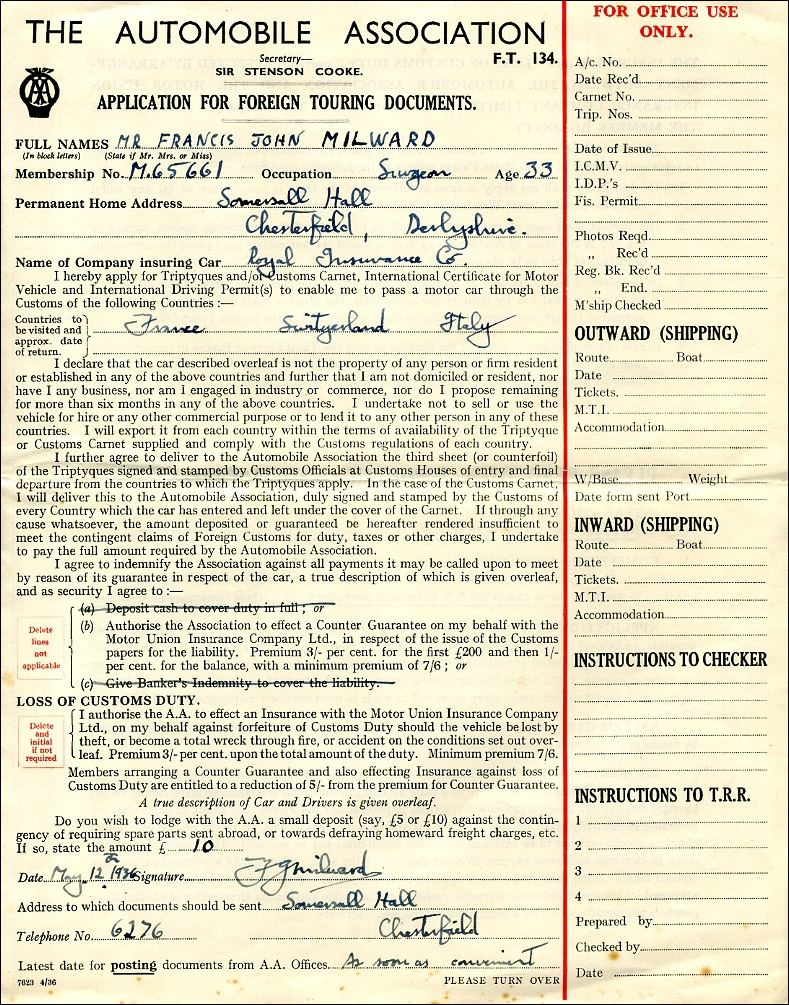 THE AUTOMOBILE ASSOCIATION
F.T. 134.
Secretary—
SIR STENSON COOKE.
AA
APPLICATION FOR FOREIGN TOURING DOCUMENTS.
FULL NAMES MR FRANCIS JOHN MILWARD
(In block letters) (State if Mr. Mrs. or Miss)
Membership No. M.65661 Occupation Surgeon Age 33
Permanent Home Address Somersall Hall
Chesterfield, Derbyshire.
Name of Company insuring Car Royal Insurance Co.
I hereby apply for Triptyques and/or Customs Carnet, International Certificate for Motor
Vehicle and International Driving Permit(s) to enable me to pass a motor car through the
Customs of the following Countries :—
Countries to
be visited and
approx. date
of return.
France Switzerland Italy
I declare that the car described overleaf is not the property of any person or firm resident
or established in any of the above countries and further that I am not domiciled or resident, nor
have I any business, nor am I engaged in industry or commerce, nor do I propose remaining
for more than six months in any of the above countries. I undertake not to sell or use the
vehicle for hire or any other commercial purpose or to lend it to any other person in any of these
countries. I will export it from each country within the terms of availability of the Triptyque
or Customs Carnet supplied and comply with the Customs regulations of each country.
I further agree to deliver to the Automobile Association the third sheet (or counterfoil)
of the Triptyques signed and stamped by Customs Officials at Customs Houses of entry and final
departure from the countries to which the Triptyques apply. In the case of the Customs Carnet,
I will deliver this to the Automobile Association, duly signed and stamped by the Customs of
every Country which the car has entered and left under the cover of the Carnet. If through any
cause whatsoever, the amount deposited or guaranteed be hereafter rendered insufficient to
meet the contingent claims of Foreign Customs for duty, taxes or other charges, I undertake
to pay the full amount required by the Automobile Association.
I agree to indemnify the Association against all payments it may be called upon to meet
by reason of its guarantee in respect of the car, a true description of which is given overleaf,
and as security I agree to :—
Delete
lines
not
applicable
(a) Deposit cash to cover duty in full ; or
(b) Authorise the Association to effect a Counter Guarantee on my behalf with the
Motor Union Insurance Company Ltd., in respect of the issue of the Customs
papers for the liability. Premium 3/- per cent. for the first £200 and then 1/-
per cent. for the balance, with a minimum premium of 7/6 ; or
(c) Give Banker's Indemnity to cover the liability.
LOSS OF CUSTOMS DUTY.
Delete
and
initial
if not
required
I authorise the A.A. to effect an Insurance with the Motor Union Insurance Company
Ltd., on my behalf against forfeiture of Customs Duty should the vehicle be lost by
theft, or become a total wreck through fire, or accident on the conditions set out over-
leaf. Premium 3/- per cent. upon the total amount of the duty. Minimum premium 7/6.
Members arranging a Counter Guarantee and also effecting Insurance against loss of
Customs Duty are entitled to a reduction of 5/- from the premium for Counter Guarantee.
A true description of Car and Drivers is given overleaf.
Do you wish to lodge with the A.A. a small deposit (say, £5 or £10) against the contin-
gency of requiring spare parts sent abroad, or towards defraying homeward freight charges, etc.
If so, state the amount £ 10
Date May 12th 1936 Signature FJMilward
Address to which documents should be sent Somersall Hall
Telephone No. 6276 Chesterfield
Latest date for posting documents from A.A. Offices. As soon as convenient
7623 4/36 PLEASE TURN OVER
FOR OFFICE USE
ONLY.
A/c. No.
Date Rec'd
Carnet No.
Trip. Nos.
Date of Issue
I.C.M.V.
I.D.P.'s
Fis. Permit
Photos Reqd.
„ Rec'd
Reg. Bk. Rec'd
„ End.
M'ship Checked
OUTWARD (SHIPPING)
Route Boat
Date
Tickets.
M.T.I.
Accommodation
W/Base Weight
Date form sent Port
INWARD (SHIPPING)
Route Boat
Date
Tickets.
M.T.I.
Accommodation
INSTRUCTIONS TO CHECKER
INSTRUCTIONS TO T.R.R.
1
2
3
4
Prepared by
Checked by
Date